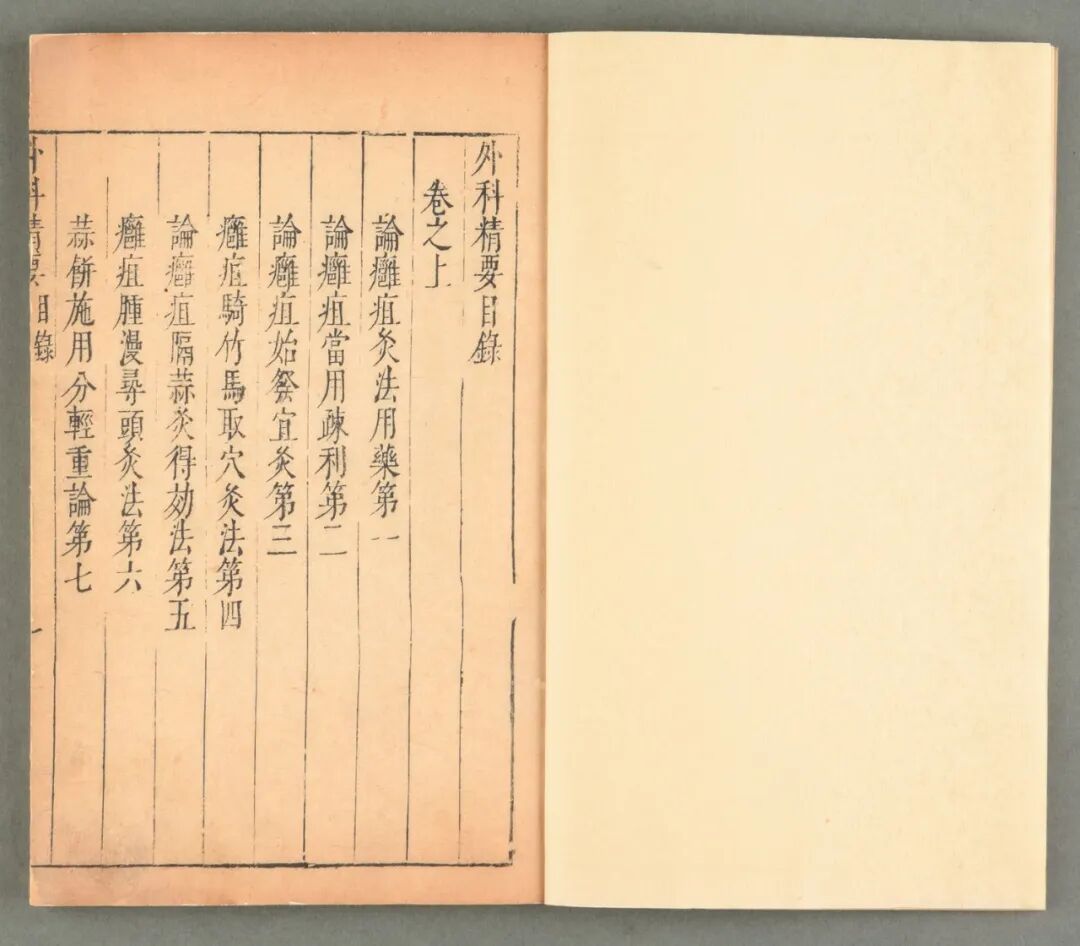 外科精要目錄
卷之上
論癰疽灸法用藥第一
論癰疽當用疎利第二
論癰疽始發宜灸第三
癰疽騎竹馬取穴灸法第四
論癰疽隔蒜灸得効法第五
癰疽腫漫尋頭灸法第六
蒜餅施用分輕重論第七
外科精要 目錄 一